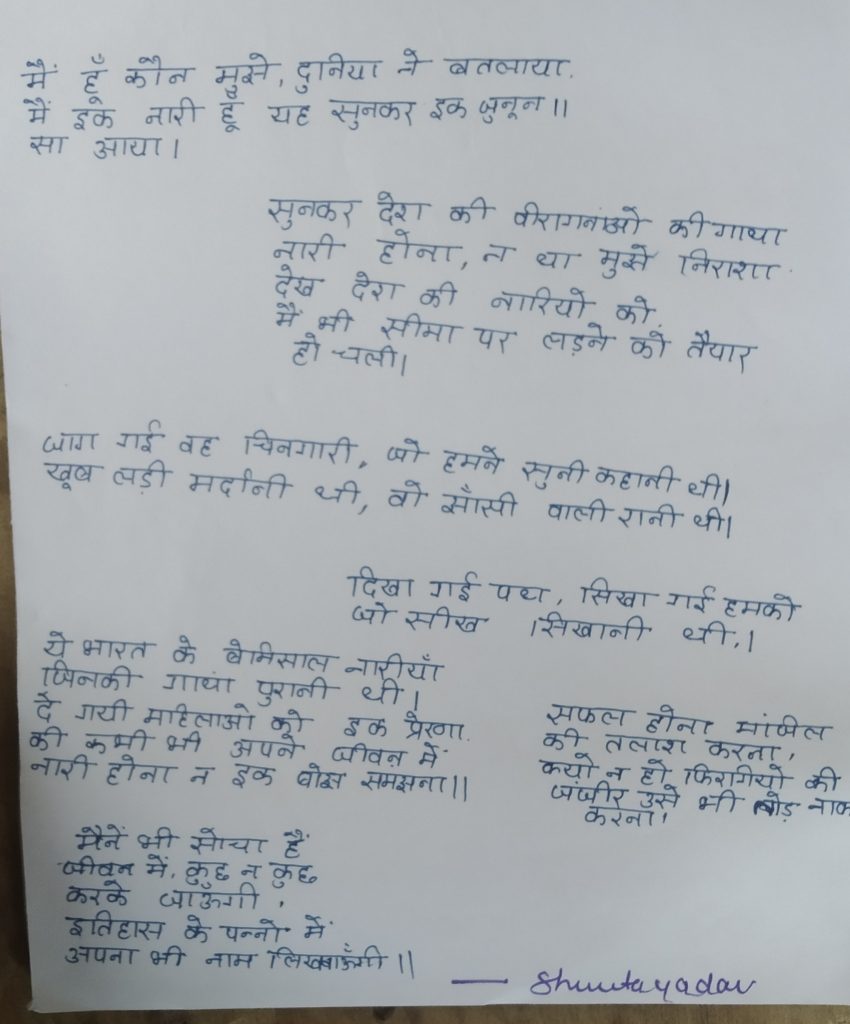 मैं हूँ कौन मुझे, दुनिया ने बतलाया.
मैं इक नारी हूँ यह सुनकर इक जुनून।।
सा आया।
सुनकर देश की वीरागनाओं की गाथा
नारी होना, न था मुझे निराशा.
देख देश की नारियो को,
मैं भी सीमा पर लड़ने को तैयार
हो चली।
जाग गई वह चिनगारी, जो हमने सुनी कहानी थी।
खूब लड़ी मर्दानी थी, वो झाँसी वाली रानी थी।
दिखा गई पथ, सिखा गई हमको
जो सीख सिखानी थी,।
ये भारत के बेमिसाल नारीयाँ
जिनकी गाथा पुरानी थी।
दे गयी महिलाओ को इक प्रेरणा.
की कभी भी अपने जीवन में
नारी होना न इक बोझ समझना।।
सफल होना मंजिल
की तलाश करना,
क्यो न हो फिरंगियो की
जंजीर उसे भी तोड़
करना।
मैनें भी सोचा हैं
जीवन में, कुछ न कुछ
करके जाऊँगी,
इतिहास के पन्नो में
अपना भी नाम लिखवाऊँगी।।